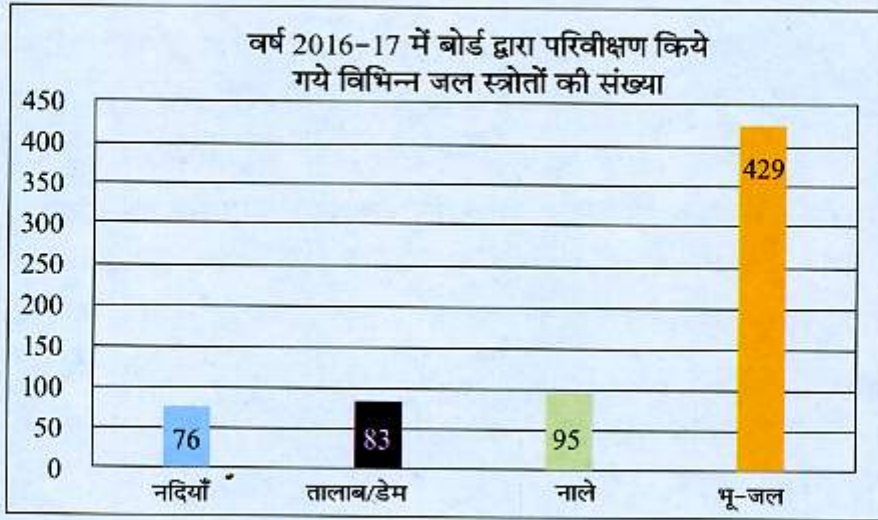 वर्ष 2016-17 में बोर्ड द्वारा परिवीक्षण किये
गये विभिन्न जल स्त्रोतों की संख्या
450
400
350
300
250
200
150
100
50
0
76
83
95
429
नदियाँ तालाब/डेम नाले भू-जल